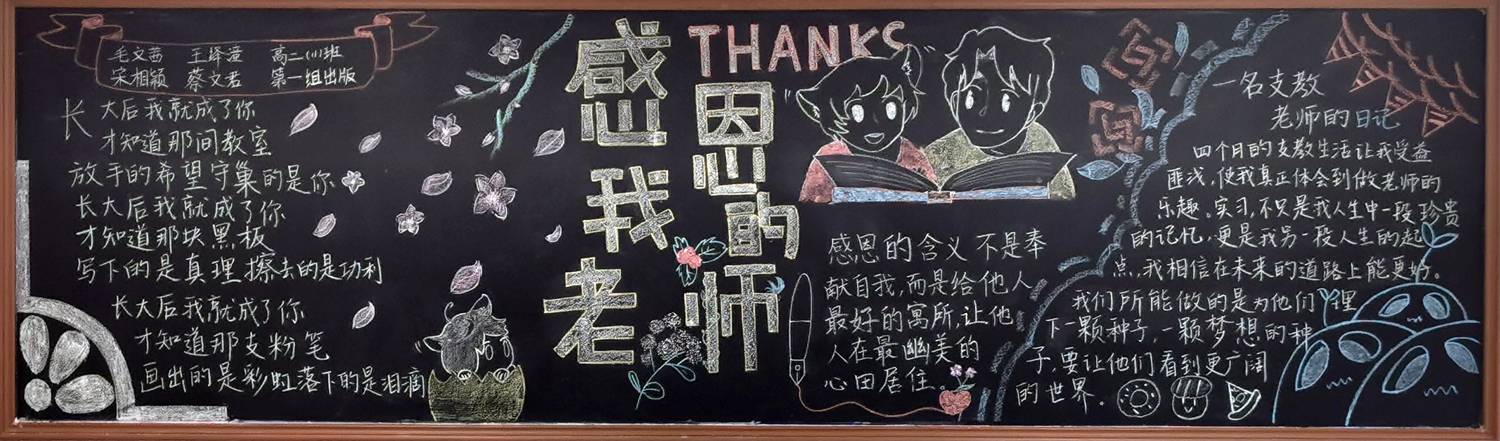 毛文茜 王绎滢 高二(11)班
宋相颖 蔡文君 第一组出版
长大后我就成了你
才知道那间教室
放手的希望守巢的是你
长大后我就成了你
才知道那块黑板
写下的是真理擦去的是功利
长大后我就成了你
才知道那支粉笔
画出的是彩虹落下的是泪滴
THANKS
感恩我的老师
感恩的含义不是奉
献自我,而是给他人
最好的寓所,让他
人在最幽美的
心田居住。
一名支教
老师的日记
四个月的支教生活让我受益
匪浅,使我真正体会到做老师的
乐趣。实习,不只是我人生中一段珍贵
的记忆,更是我另一段人生的起
点,我相信在未来的道路上能更好。
我们所能做的是为他们埋
下一颗种子,一颗梦想的种
子,要让他们看到更广阔
的世界。